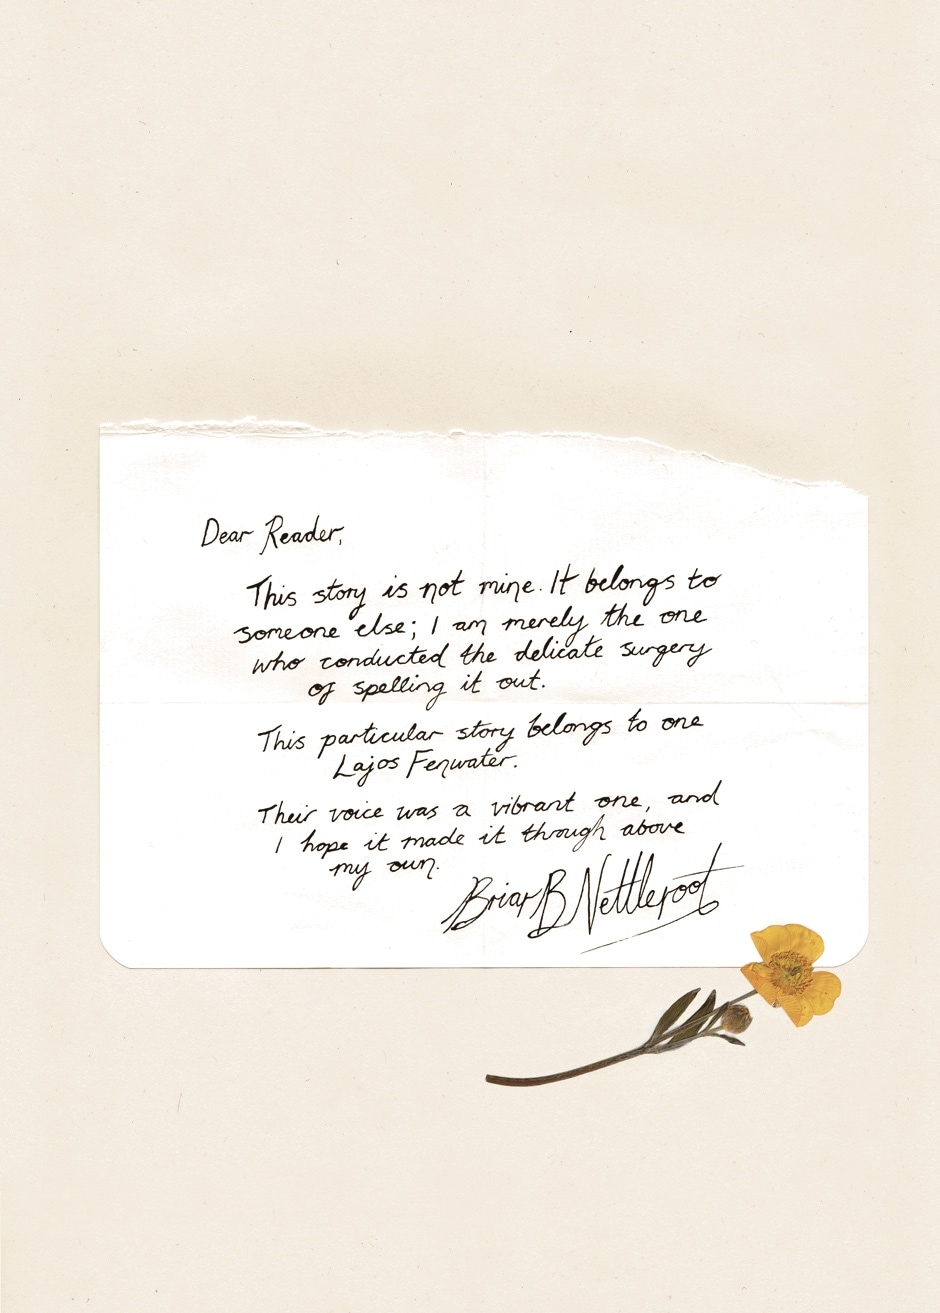 Dear Reader,
This story is not mine. It belongs to
someone else; I am merely the one
who conducted the delicate surgery
of spelling it out.
This particular story belongs to one
Lajos Fenwater.
Their voice was a vibrant one, and
I hope it made it through above
my own.
Briar B Nettleroot